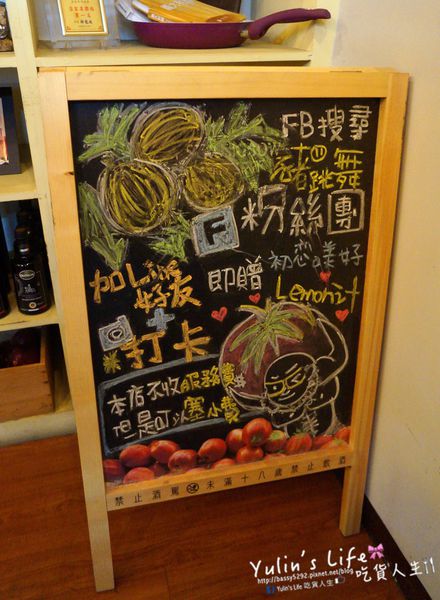 FB搜尋
豬跳舞
F 粉絲團
加Line好友
即贈
初戀美好
Lemonit
+
打卡
本店不收服務費
但是可以塞小費
禁止酒駕 未滿十八歲禁止飲酒
Yulin's Life
吃貨人生!!
http://bassy5292.pixnet.net/blog
Yulin's Life 吃貨人生